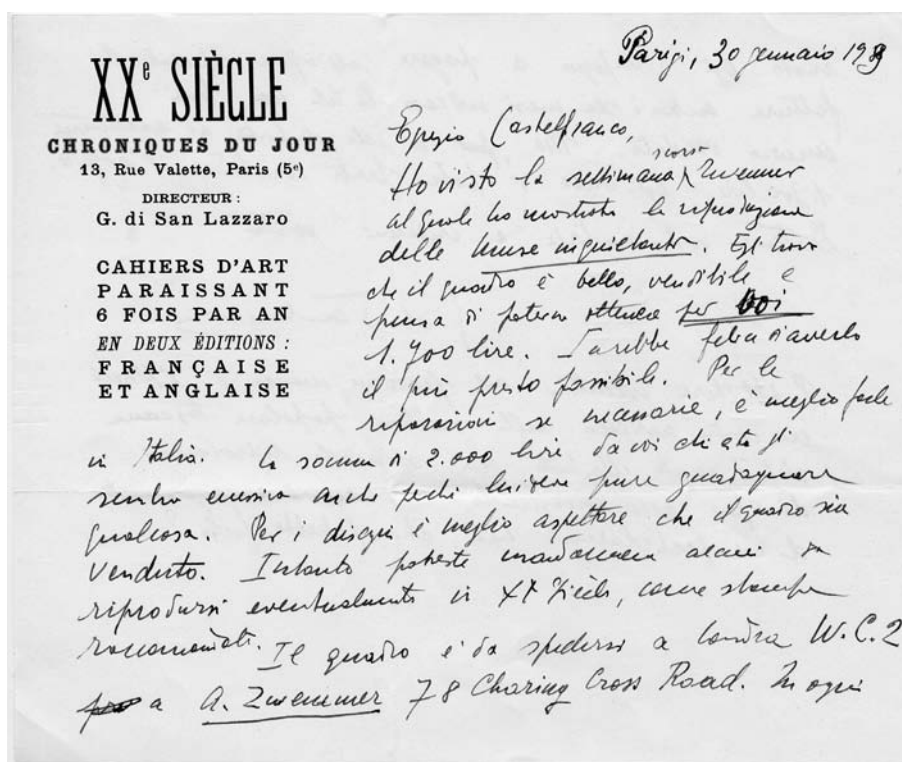 XXe SIÈCLE
CHRONIQUES DU JOUR
13, Rue Valette, Paris (5e)
DIRECTEUR :
G. di San Lazzaro
CAHIERS D'ART
PARAISSANT
6 FOIS PAR AN
EN DEUX ÉDITIONS :
FRANÇAISE
ET ANGLAISE
Parigi, 30 gennaio 1939
Egregio Castelfranco,
scorsa
Ho visto la settimana Zwemmer
al quale ho mostrato la riproduzione
delle Muse inquietanti. Egli trova
che il quadro è bello, vendibile e
pensa di poterne ottenere per voi
1.700 lire. Sarebbe felice d'averlo
il più presto possibile. Per le
riparazioni se necessarie, è meglio farle
in Italia. La somma di 2.000 lire da voi chiesta gli
sembra eccessiva anche perché lui deve pure guadagnare
qualcosa. Per i disegni è meglio aspettare che il quadro sia
venduto. Intanto potreste mandarmene alcuni da
riprodursi eventualmente in XX Siècle, come stampe
raccomandate. Il quadro è da spedirsi a Londra W.C.2
a A. Zwemmer 78 Charing Cross Road. In ogni